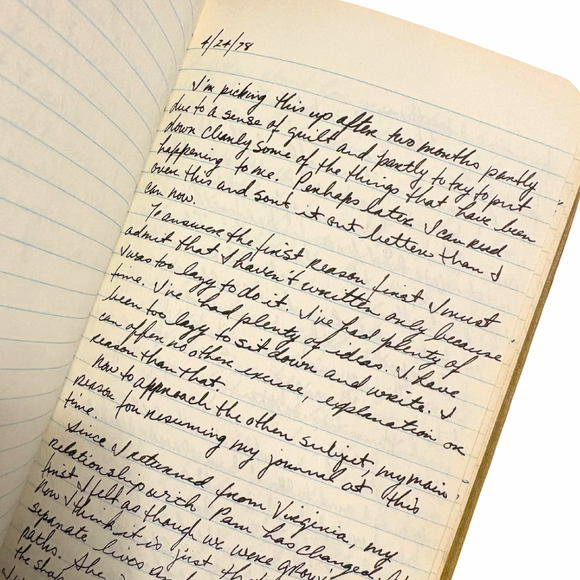 4/24/78
I'm picking this up after two months partly
due to a sense of guilt and partly to try to put
down clearly some of the things that have been
happening to me. Perhaps later I can read
over this and sort it out better than I
can now.
To answer the first reason first I must
admit that I haven't written only because
I was too lazy to do it. I've had plenty of
time. I've had plenty of ideas. I have
been too lazy to sit down and write. I
can offer no other excuse, explanation or
reason than that.
Now to approach the other subject, my main
reason for resuming my journal at this
time.
Since I returned from Virginia, my
relationship with Pam has changed. At
first I felt as though we were growing
now I think it is just that
separate lives and
paths. She
the shape